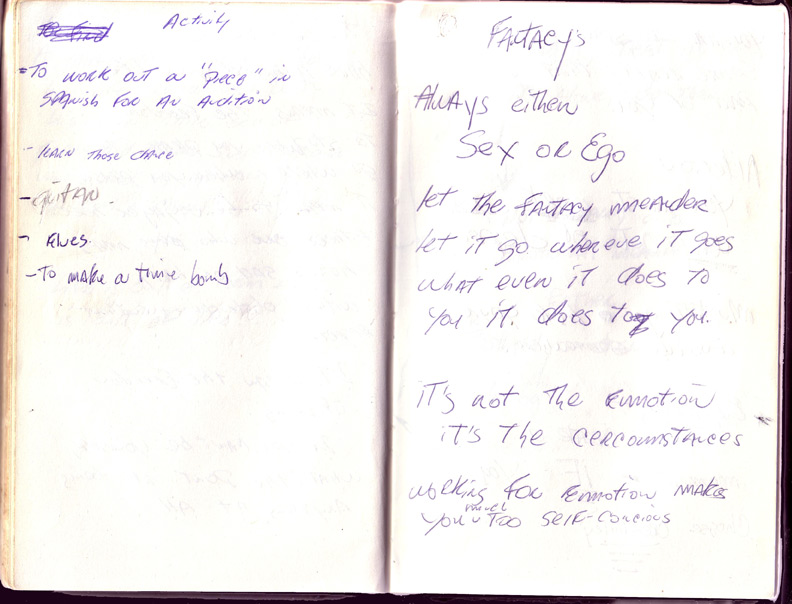 Activity
- To work out a "piece" in
Spanish for an Audition
- learn those chance
- guitar.
- Elves.
- To make a time bomb
Fantacy's
Always either
Sex or Ego
let the fantacy meander
let it go whereve it goes
what even it does to
you it. does to you.
it's not the emmotion
it's the cercomstances
working for emmotion makes
you much too self-concious